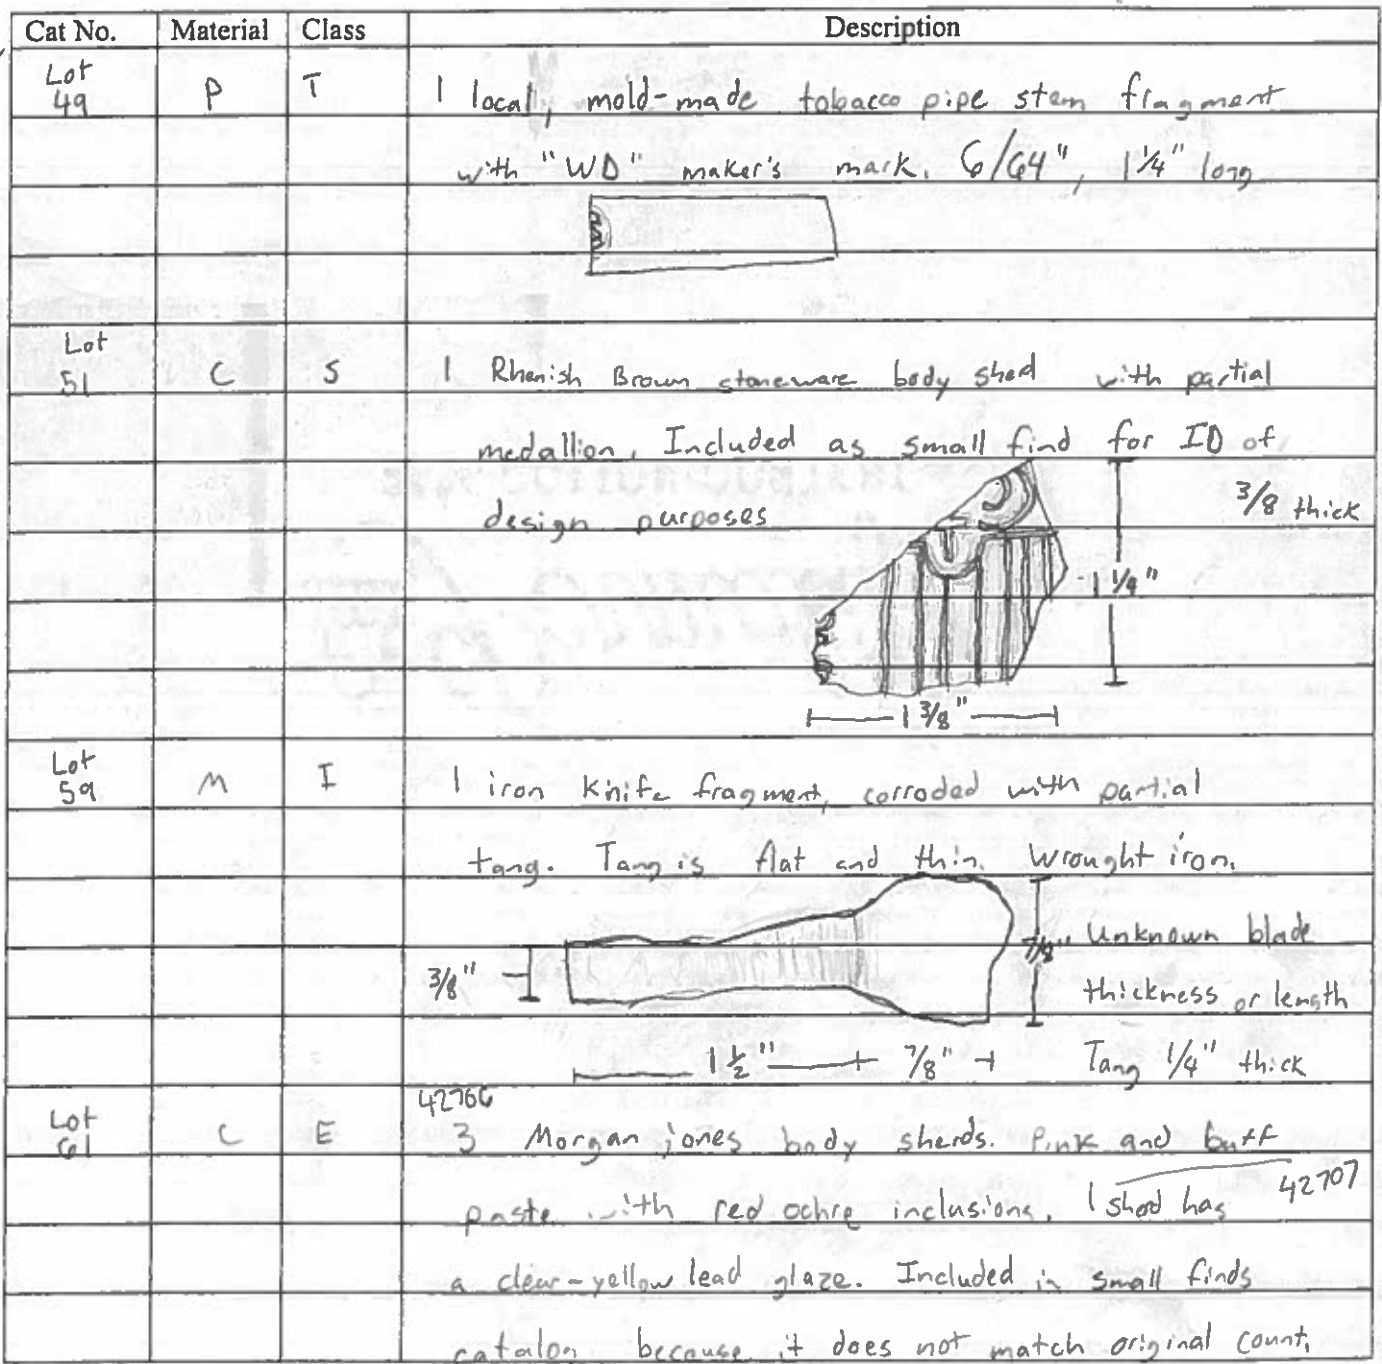 Cat No. Material Class Description
Lot
49 P T 1 local, mold-made tobacco pipe stem fragment
with "WD" maker's mark. 6/64", 1 1/4" long
Lot
51 C S 1 Rhenish Brown stoneware body shed with partial
medallion. Included as small find for ID of
design purposes 3/8 thick
1 1/4"
1 3/8"
Lot
59 M I 1 iron knife fragment, corroded with partial
tang. Tang is flat and thin. Wrought iron.
7/8" Unknown blade
3/8" thickness or length
1 1/2" 7/8" Tang 1/4" thick
42706
Lot
61 C E 3 Morgan jones body sherds. Pink and buff
paste with red ochre inclusions. 1 sherd has 42707
a clear-yellow lead glaze. Included in small finds
catalog because it does not match original count.